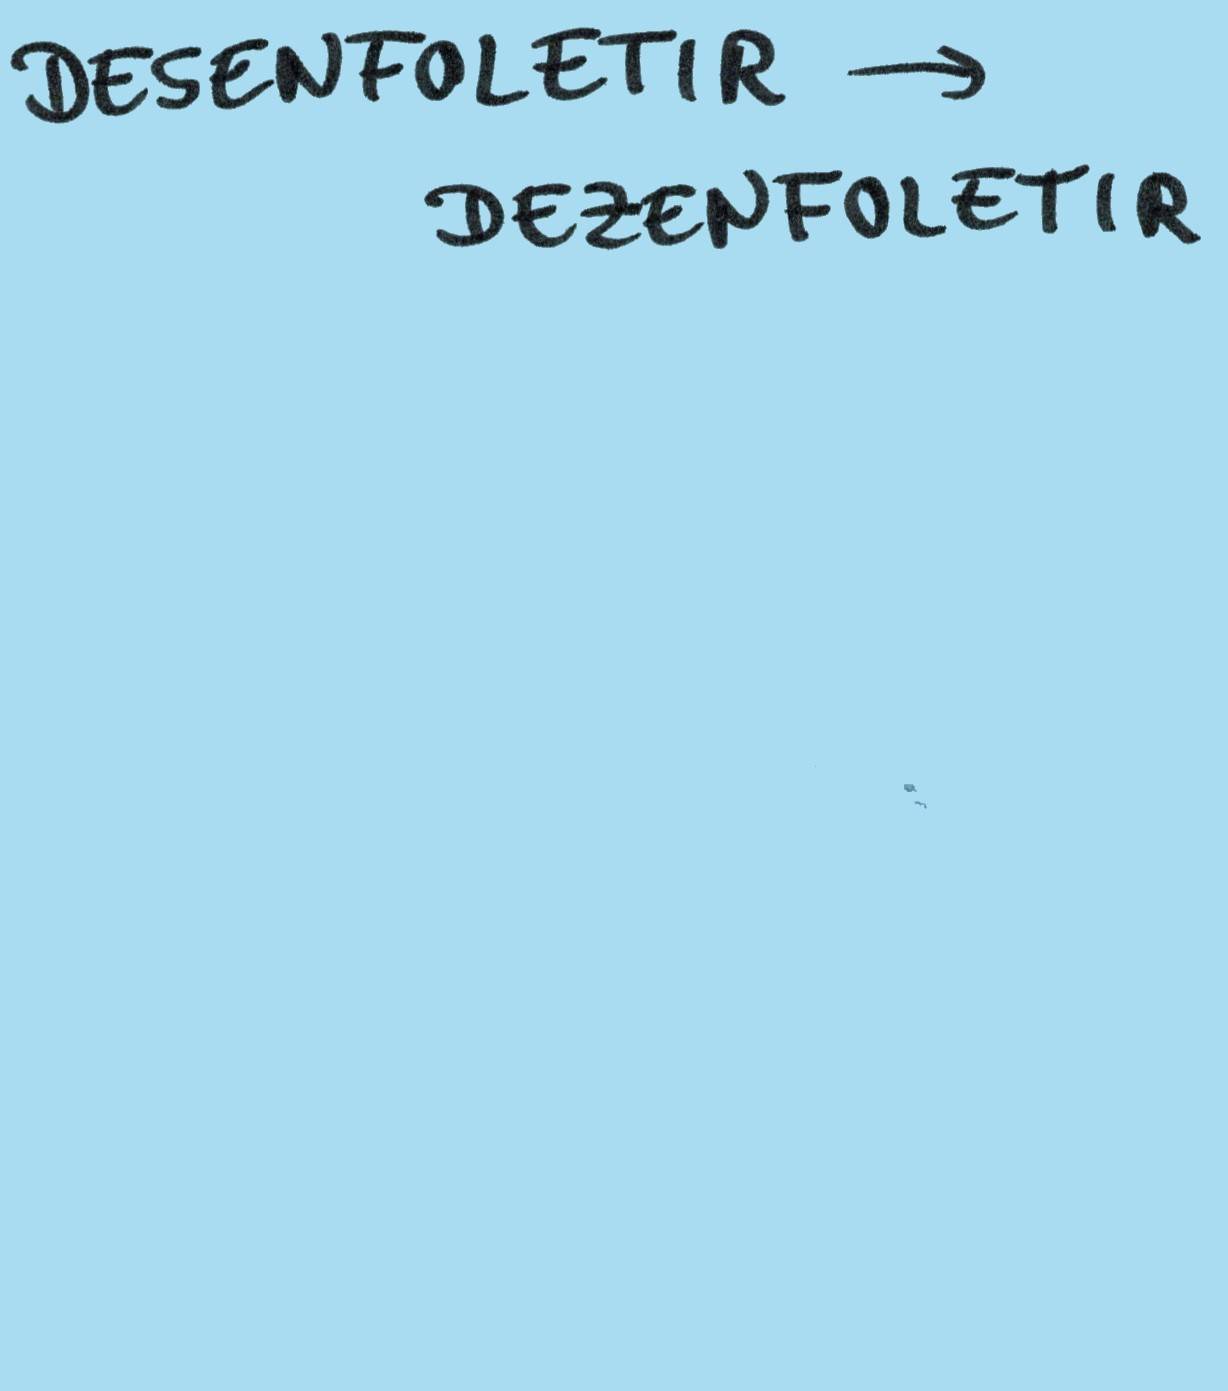 DESENFOLETIR →
DEZENFOLETIR